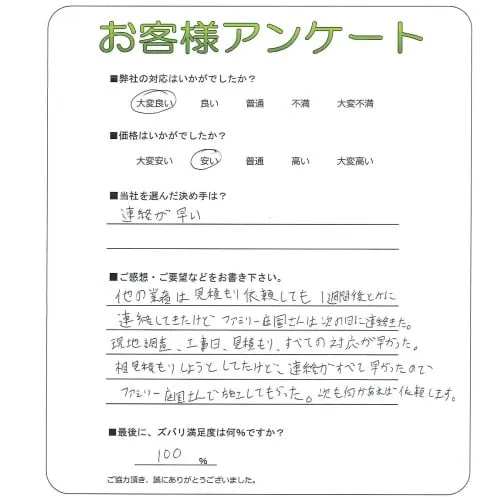 お客様アンケート
■弊社の対応はいかがでしたか？
大変良い 良い 普通 不満 大変不満
■価格はいかがでしたか？
大変安い 安い 普通 高い 大変高い
■当社を選んだ決め手は？
連絡が早い
■ご感想・ご要望などをお書き下さい。
他の業者は見積もり依頼しても1週間後とかに
連絡してきたけどファミリー庭園さんは次の日に連絡きた。
現地調査、工事日、見積もり、すべての対応が早かった。
相見積もりしようとしてたけど、連絡がすべて早かったので
ファミリー庭園さんで施工してもらった。次も何かあれば依頼します。
■最後に、ズバリ満足度は何%ですか？
100 %
ご協力頂き、誠にありがとうございました。